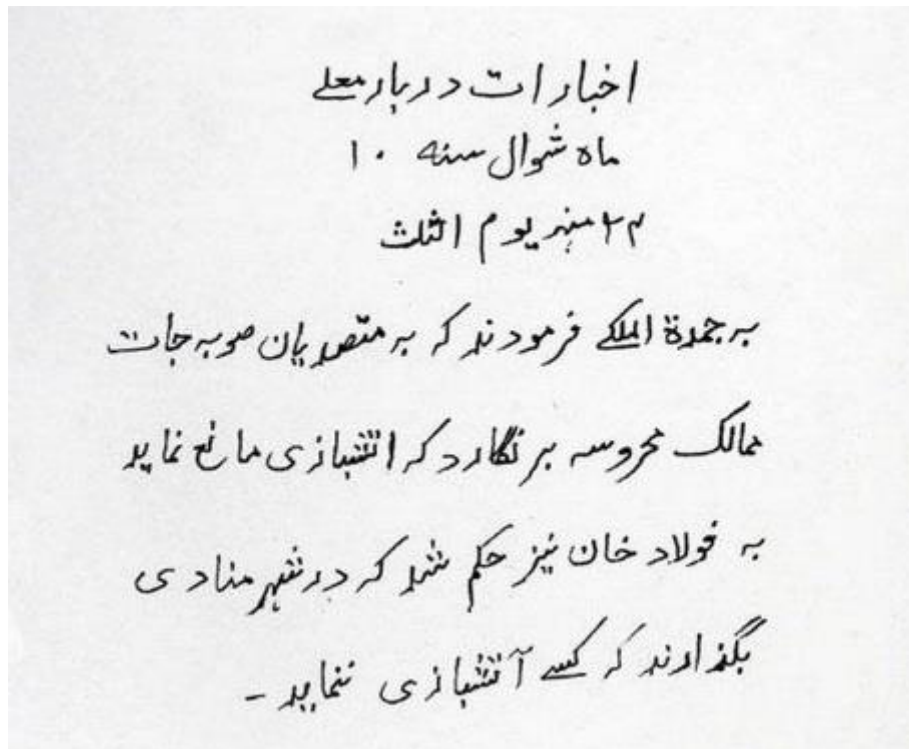 اخبارات دربار معلے
ماه شوال سنه ۱۰
۲۳ منہ یوم الثلث
به جمدة الملکے فرمودند که به متصدیان صوبه جات
ممالک محروسه بر نگارد که اتشبازی مانع نماید
به فولاد خان نیز حکم شد که در شهر منادی
بگذارند که کسے آتشبازی ننماید -